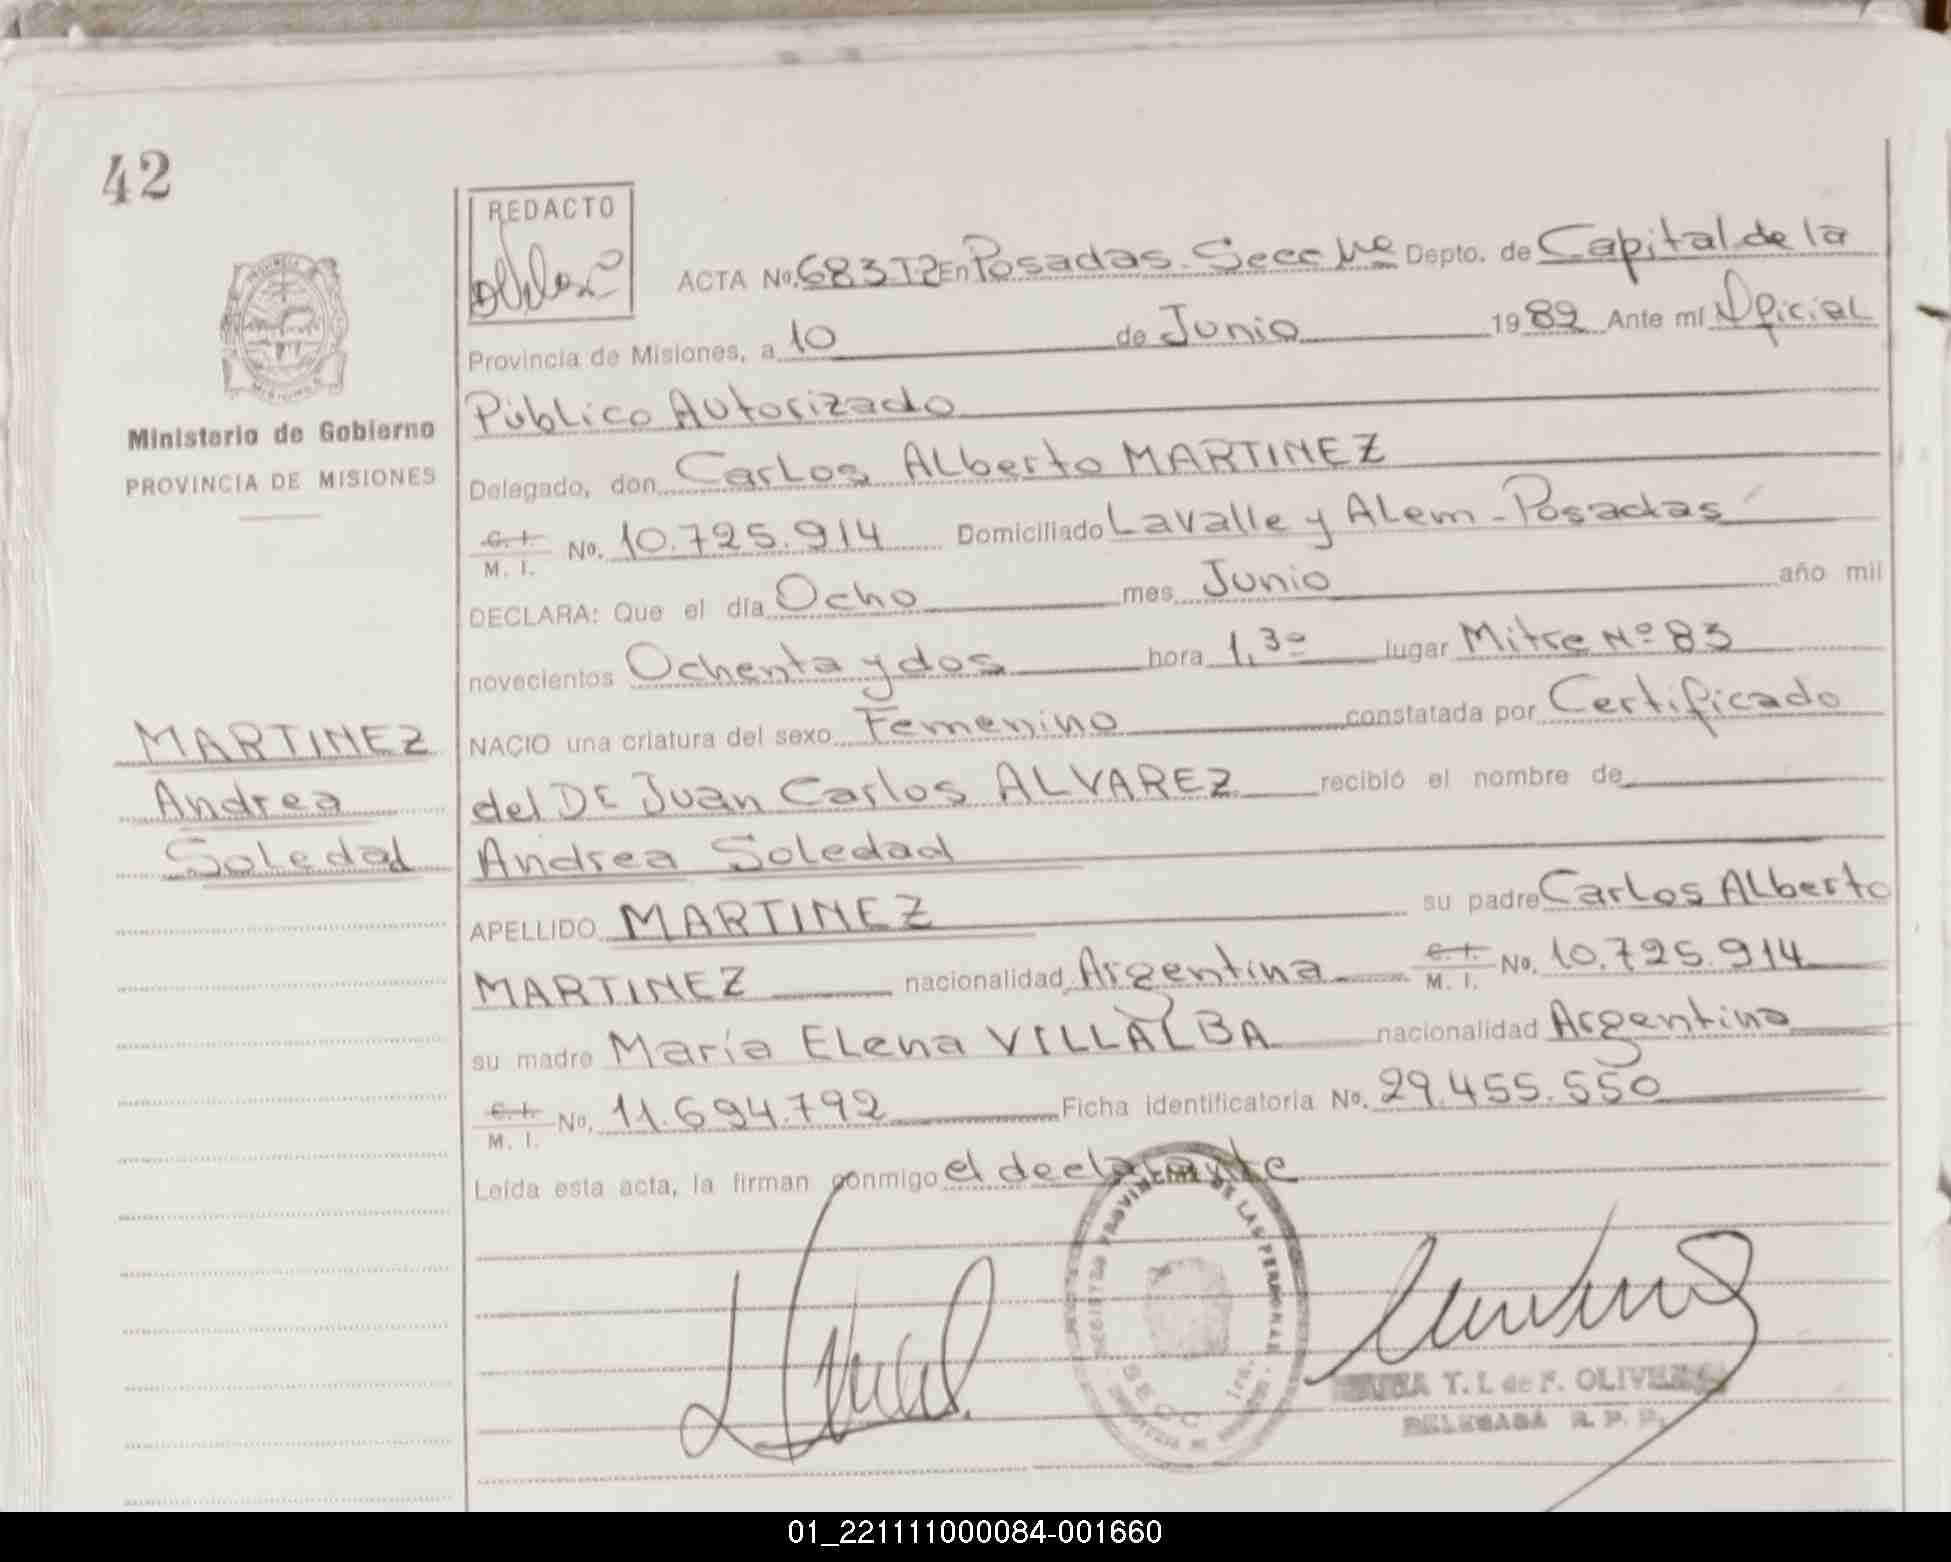 42
REDACTO
ACTA No. 683 T2 En Posadas. Secc 1ra Depto. de Capital de la
Provincia de Misiones, a 10 de Junio 1982 Ante mí Oficial
Público Autorizado
Ministerio de Gobierno
PROVINCIA DE MISIONES
Delegado, don Carlos Alberto MARTINEZ
C. I. M. I. No. 10.725.914 Domiciliado Lavalle y Alem - Posadas
DECLARA: Que el día Ocho mes Junio año mil
novecientos Ochenta y dos hora 1,30 lugar Mitre Nº 83
NACIO una criatura del sexo Femenino constatada por Certificado
MARTINEZ
Andrea
Soledad
del Dr Juan Carlos ALVAREZ recibió el nombre de
Andrea Soledad
APELLIDO MARTINEZ su padre Carlos Alberto
MARTINEZ nacionalidad Argentina C. I. M. I. No. 10.725.914
su madre María Elena VILLALBA nacionalidad Argentina
C. I. M. I. No. 11.694.792 Ficha identificatoria No. 29.455.550
Leída esta acta, la firman conmigo el declarante
REGISTRO PROVINCIAL DE LAS PERSONAS
SECC. 1ra.
T. I. de F. OLIVERA
DELEGADA R. P. P.
01_221111000084-001660